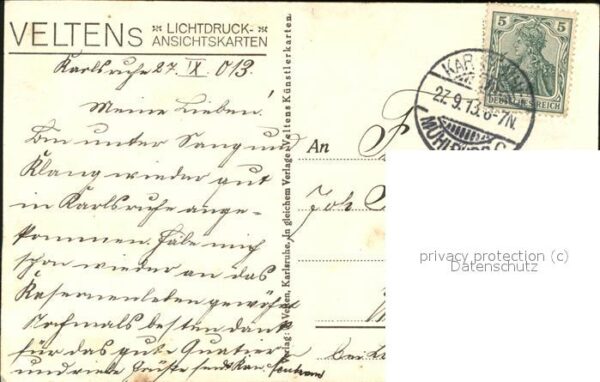 VELTENS LICHTDRUCK-
ANSICHTSKARTEN
Karlsruhe 27. IX. 013.
Meine Lieben!
Bin unter Sang und
Klang wieder gut
in Karlsruhe ange-
kommen. Habe mich
schon wieder an das
Kasernenleben gewöhnt
Nochmals besten Dank
für das gute Quatier
und viele Grüße
Verlag: Velten, Karlsruhe. In gleichem Verlage: Veltens Künstlerkarten.
An
Joh
5 5
DEUTSCHES REICH
27.9.13. 6-7N.
MÜHLBURG
privacy protection (c)
Datenschutz